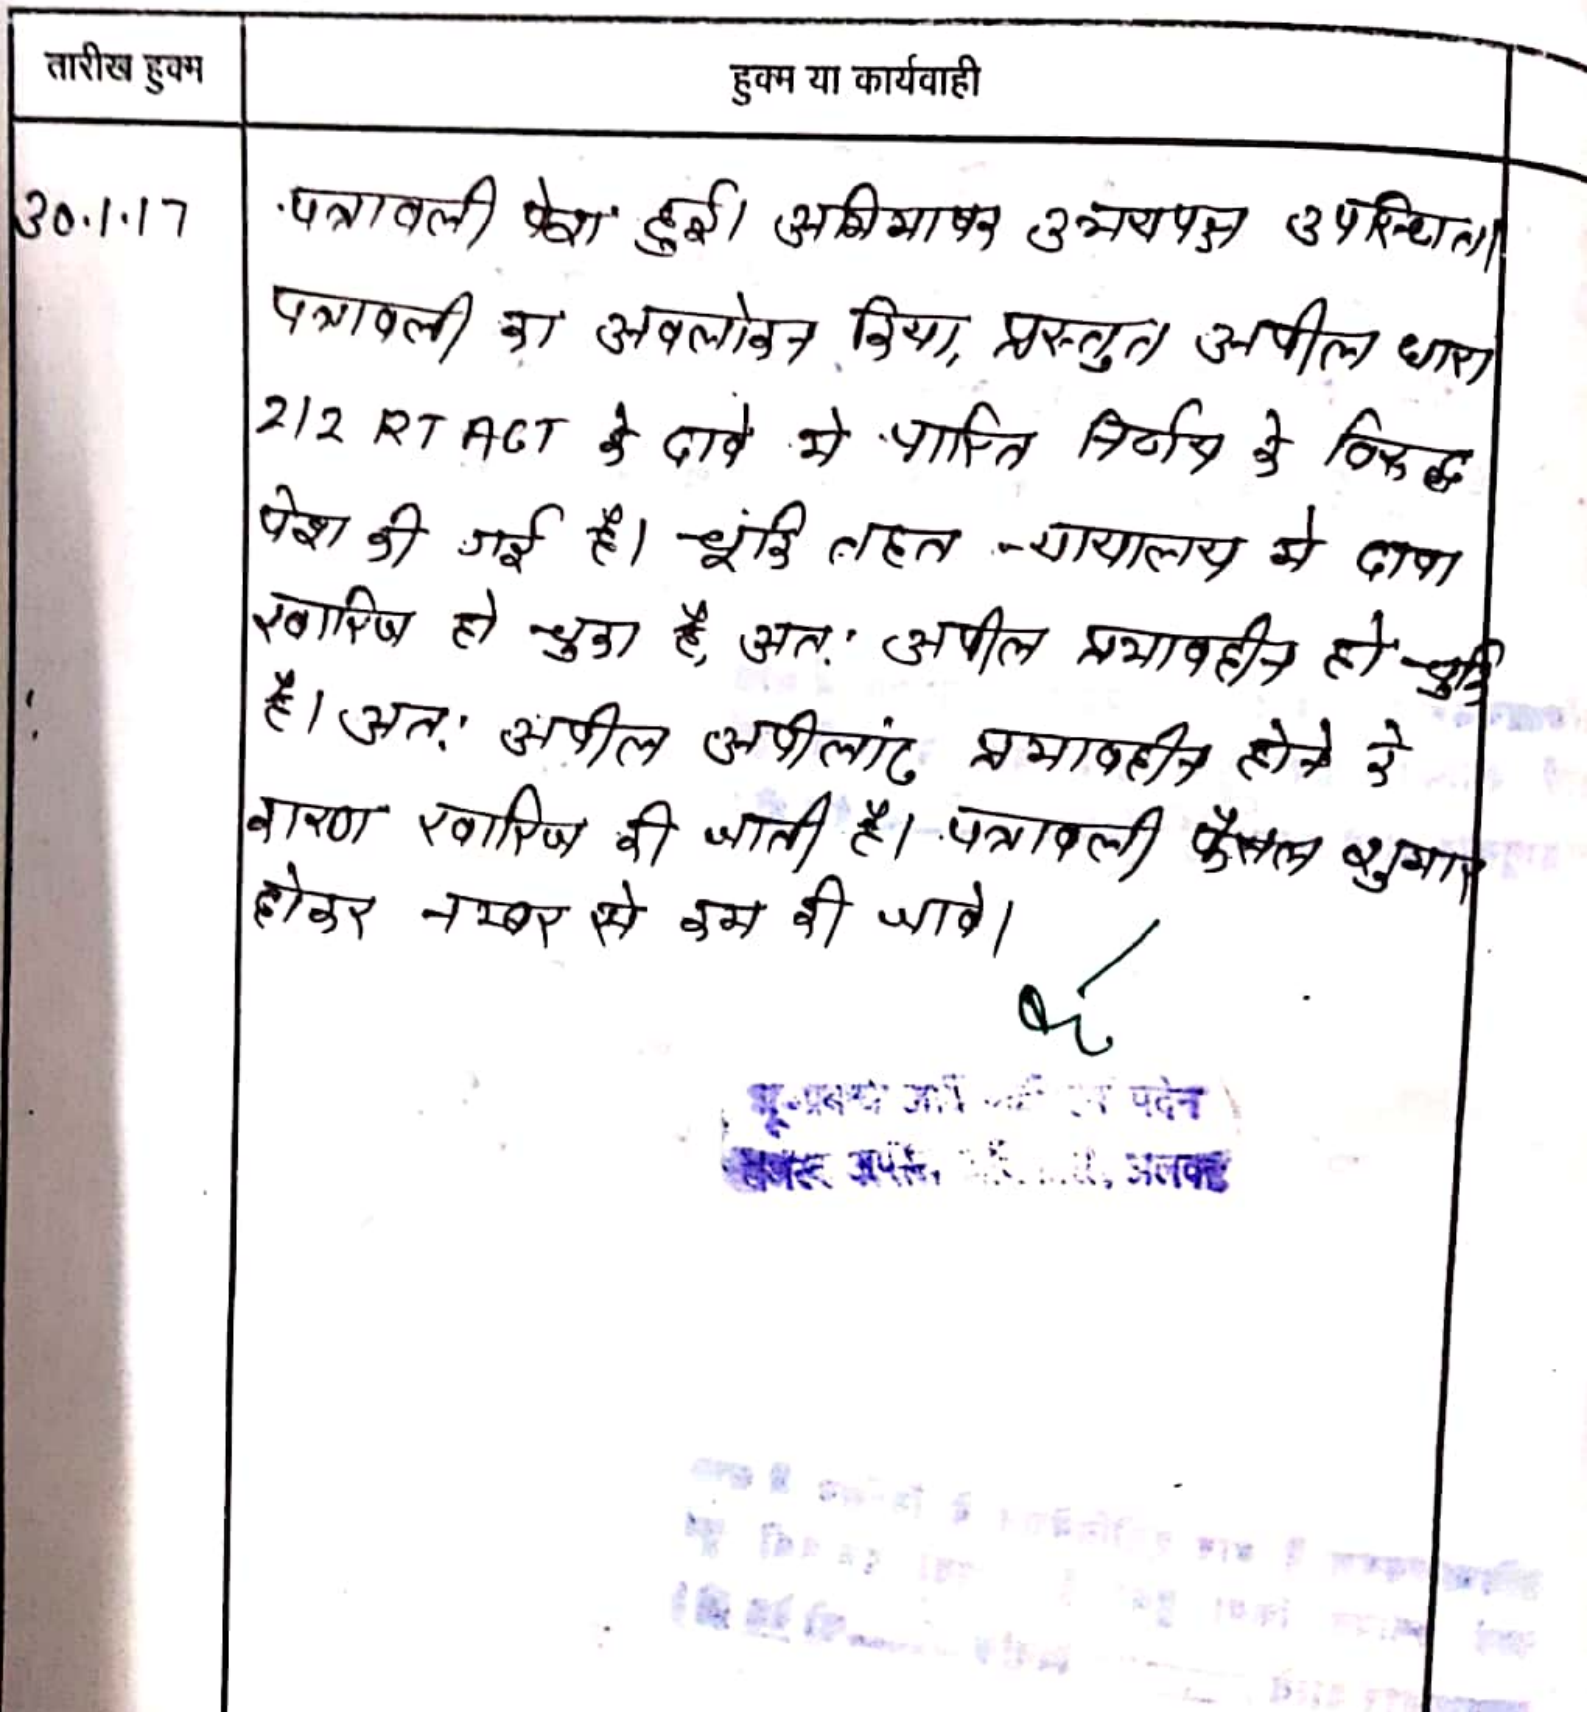 तारीख हुक्म
हुक्म या कार्यवाही
30.1.17
पत्रावली पेश हुई। अभिभाषक उभयपक्ष उपस्थित।
पत्रावली का अवलोकन किया, प्रस्तुत अपील धारा
212 RT ACT के दावे मे पारित निर्णय के विरुद्ध
पेश की गई है। चूंकि तहत न्यायालय मे दावा
खारिज हो चुका है, अत: अपील प्रभावहीन हो चुकि
है। अत: अपील अपीलांट प्रभावहीन होने के
कारण खारिज की जाती है। पत्रावली फैसल शुमार
होकर नम्बर से कम की जावे।
पदेन
अलवर